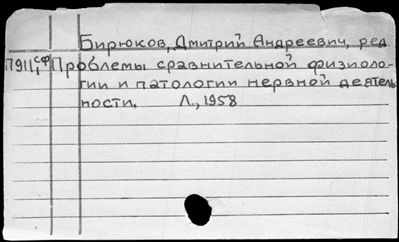 Бирюков, Дмитрий Андреевич, ред.
П911, СФ Проблемы сравнительной физиоло-
гии и патологии нервной деятель
ности. Л., 1958